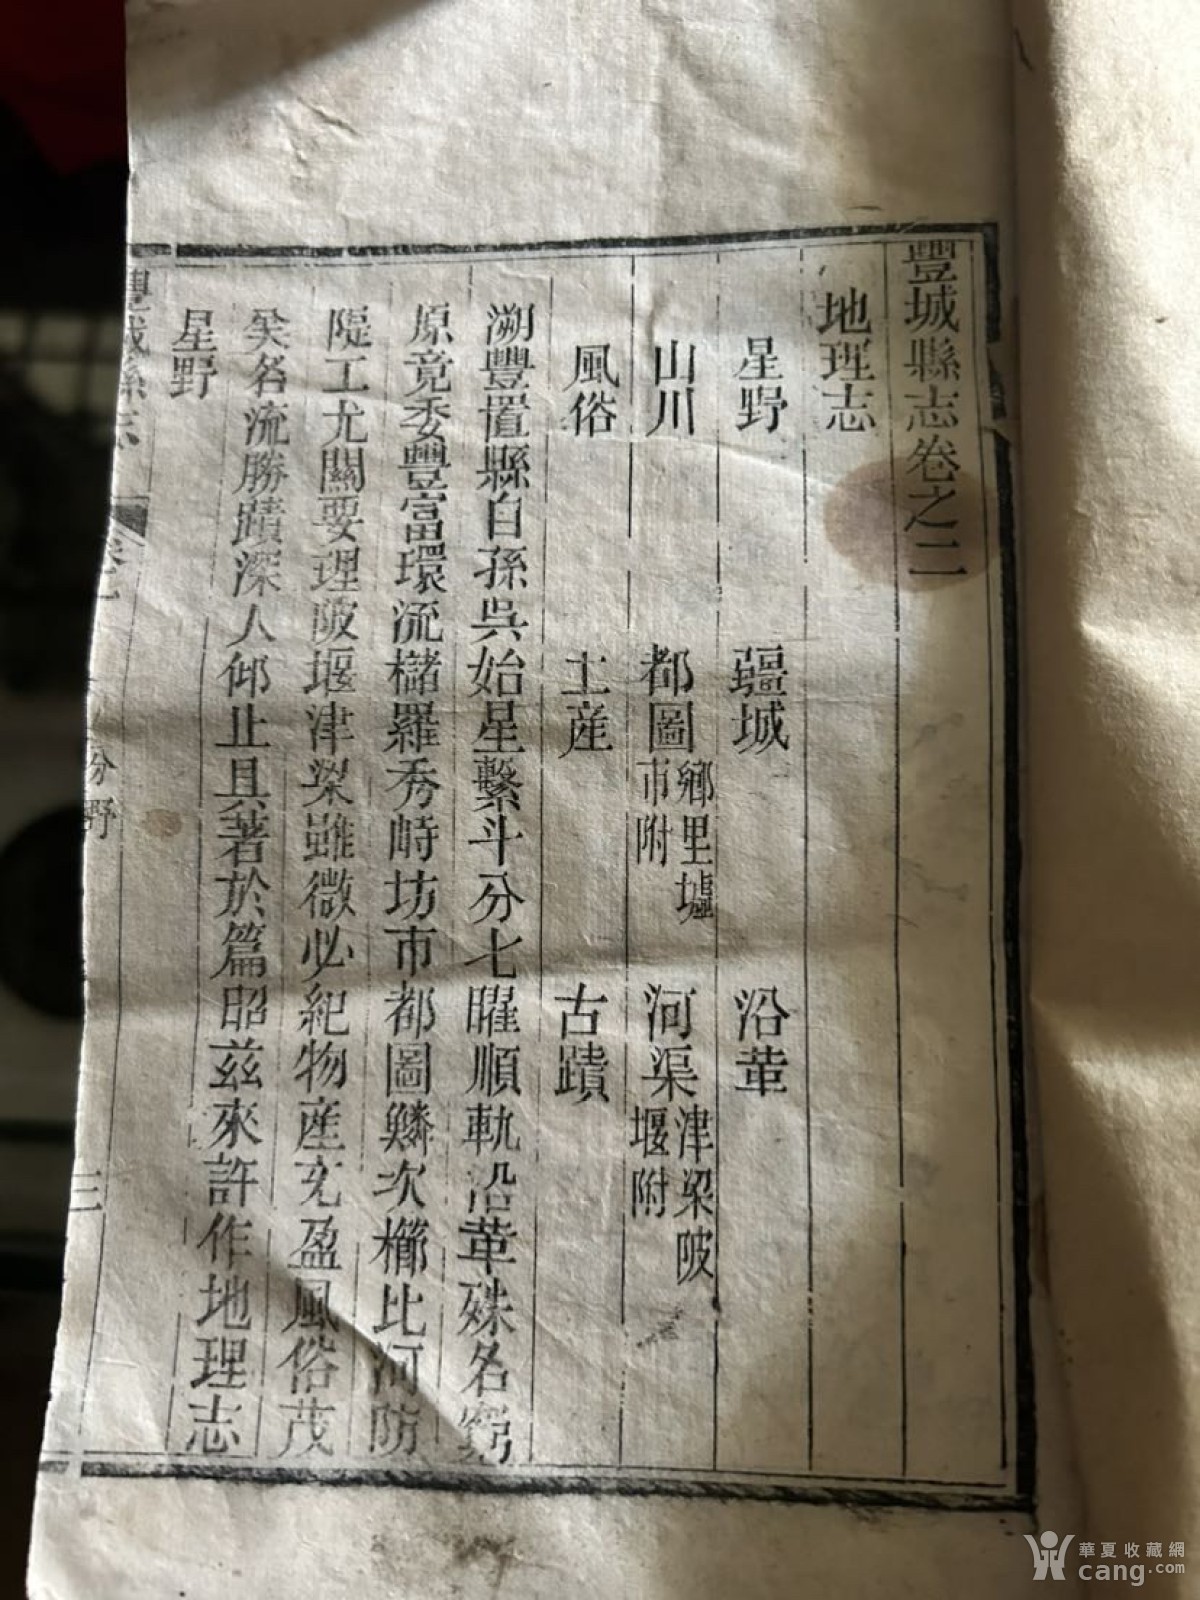 豐城縣志卷之二
地理志
星野 疆城 沿革
山川 都圖鄉里墟市附 河渠津梁陂堰附
風俗 土産 古蹟
溯豐置縣自孫吳始星繫斗分七曜順軌沿革殊名窮
原竟委豐富環流櫧羅秀峙坊市都圖鱗次櫛比河防
隄工尤關要理陂堰津梁雖微必紀物産充盈風俗茂
矣名流勝蹟深人仰止具著於篇昭茲來許作地理志
星野
豐城縣志 卷之二 分野 三
華夏收藏網
cang.com